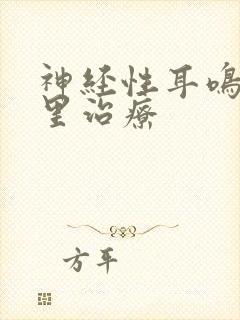 神经性耳鸣
里治療
方平